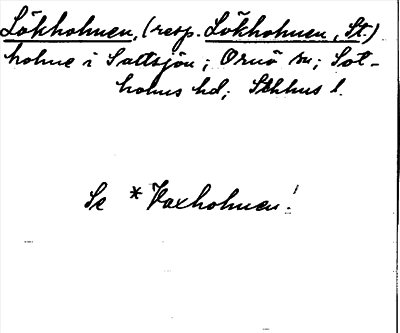 Lökholmen, (resp. Lökholmen, St.)
holme i Saltsjön; Ornö sn; Sot-
holms hd; Sthlms l.
Se *Vaxholmen!